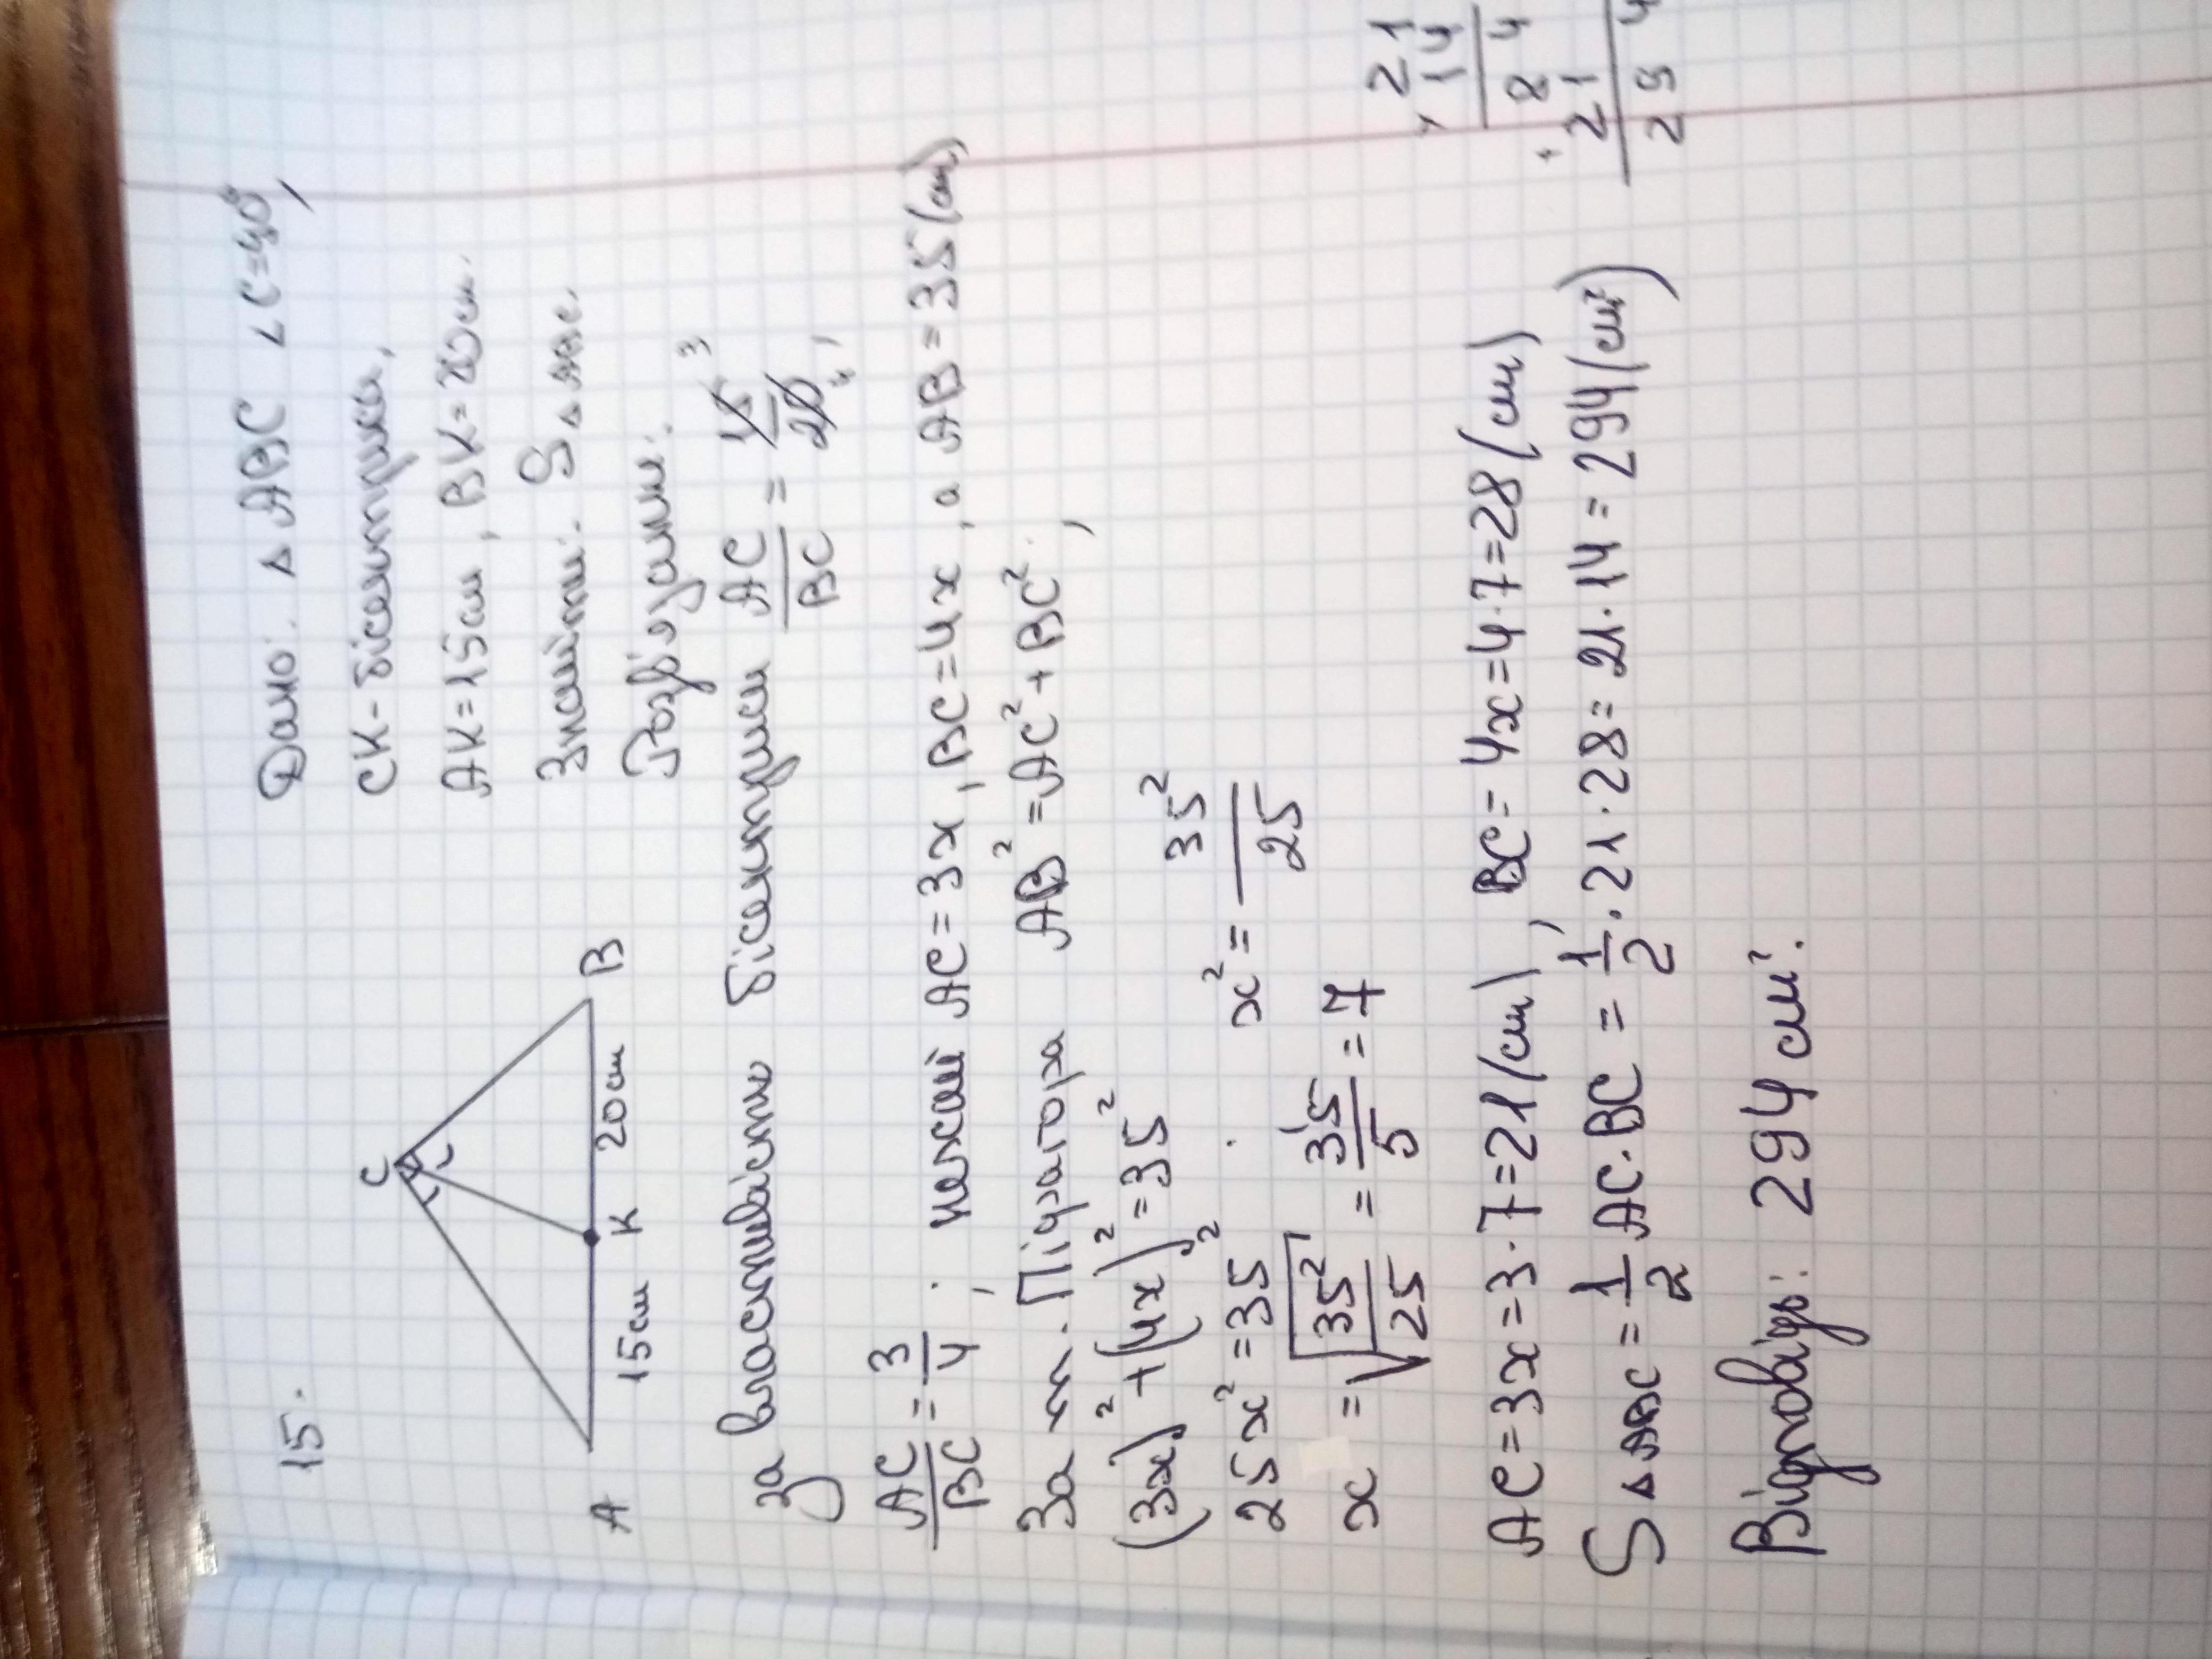 15.
Дано: △ ABC ∠C=90°,
CK - бісектриса,
AK=15см, BK=20см.
Знайти: S △ABC.
Розв'язання:
C
A 15см K 20см B
За властивістю бісектриси AC/BC = 15/20, 3 4
AC/BC = 3/4; нехай AC=3x, BC=4x, а AB=35(см)
За т. Піфагора AB² = AC² + BC²;
(3x)² + (4x)² = 35²
25x² = 35² x² = 35²/25
x = √35²/25 = 35/5 = 7
AC=3x=3·7=21(см), BC=4x=4·7=28(см)
S △ABC = 1/2 AC·BC = 1/2·21·28=21·14=294(см²)
Відповідь: 294 см².
21
× 14
84
+ 21
294